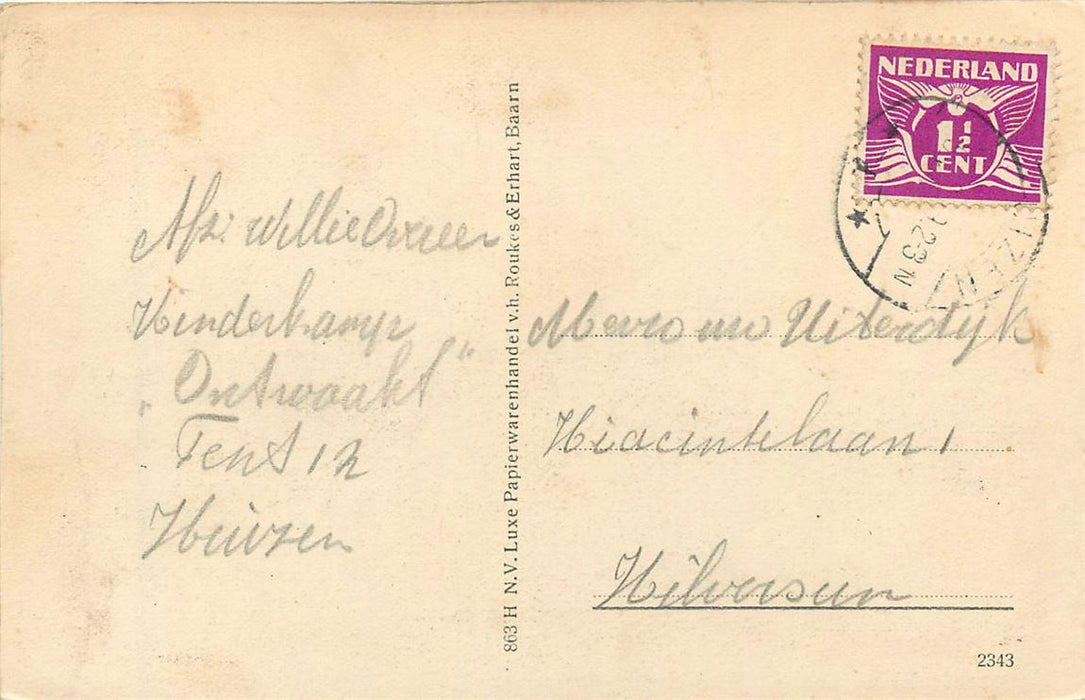 Afz. Willie
Kinderkamp
„Ontwaakt"
Tent 12
Huizen
863 H N.V. Luxe Papierwarenhandel v.h. Roukes & Erhart, Baarn
NEDERLAND
1½
CENT
Mevrouw Uiterdijk
Hiacintelaan 1
Hilversum
2343